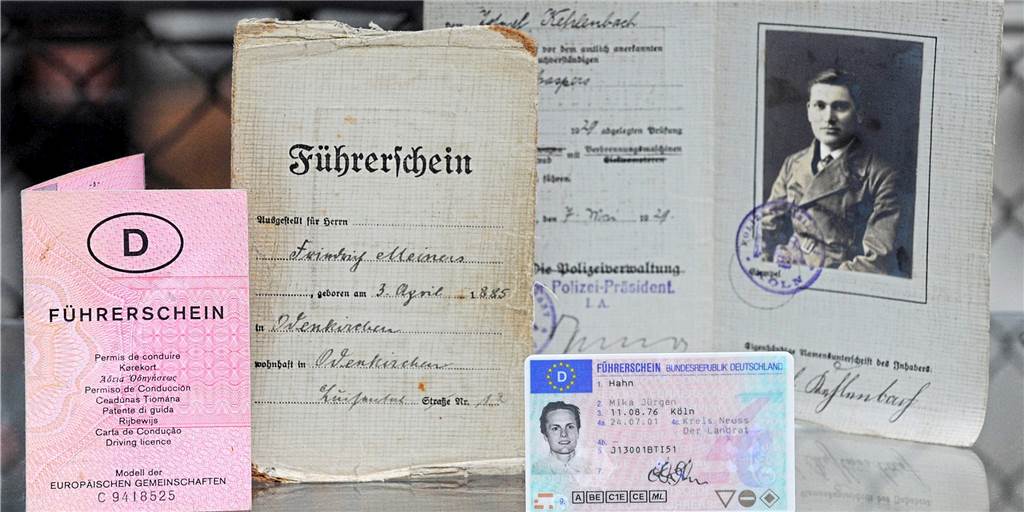 D
FÜHRERSCHEIN
Permis de conduire
Kørekort
Άδεια Οδηγήσεως
Permiso de Conducción
Ceadúnas Tiomána
Patente di guida
Rijbewijs
Carta de Condução
Driving licence
Modell der
EUROPÄISCHEN GEMEINSCHAFTEN
C 9418525
Führerschein
Ausgestellt für Herrn
Friedrich Meiners
, geboren am 3. April 1885
in Odenkirchen
wohnhaft in Odenkirchen
Straße Nr. 13
Josef Kehlenbach
vor dem amtlich anerkannten
1929 abgelegten Prüfung
und mit Verbrennungsmaschinen
führen.
den 7. Mai 1929.
Die Polizeiverwaltung
Polizei-Präsident.
I. A.
Stempel
KÖLN
Eigenhändige Namensunterschrift des Inhabers:
Kehlenbach
D FÜHRERSCHEIN BUNDESREPUBLIK DEUTSCHLAND
1. Hahn
2. Mika Jürgen
3. 11.08.76 Köln
4a. 24.07.01 4c. Kreis Neuss
Der Landrat
4b.
5. J13001BTI51
7.
9. A BE C1E CE ML